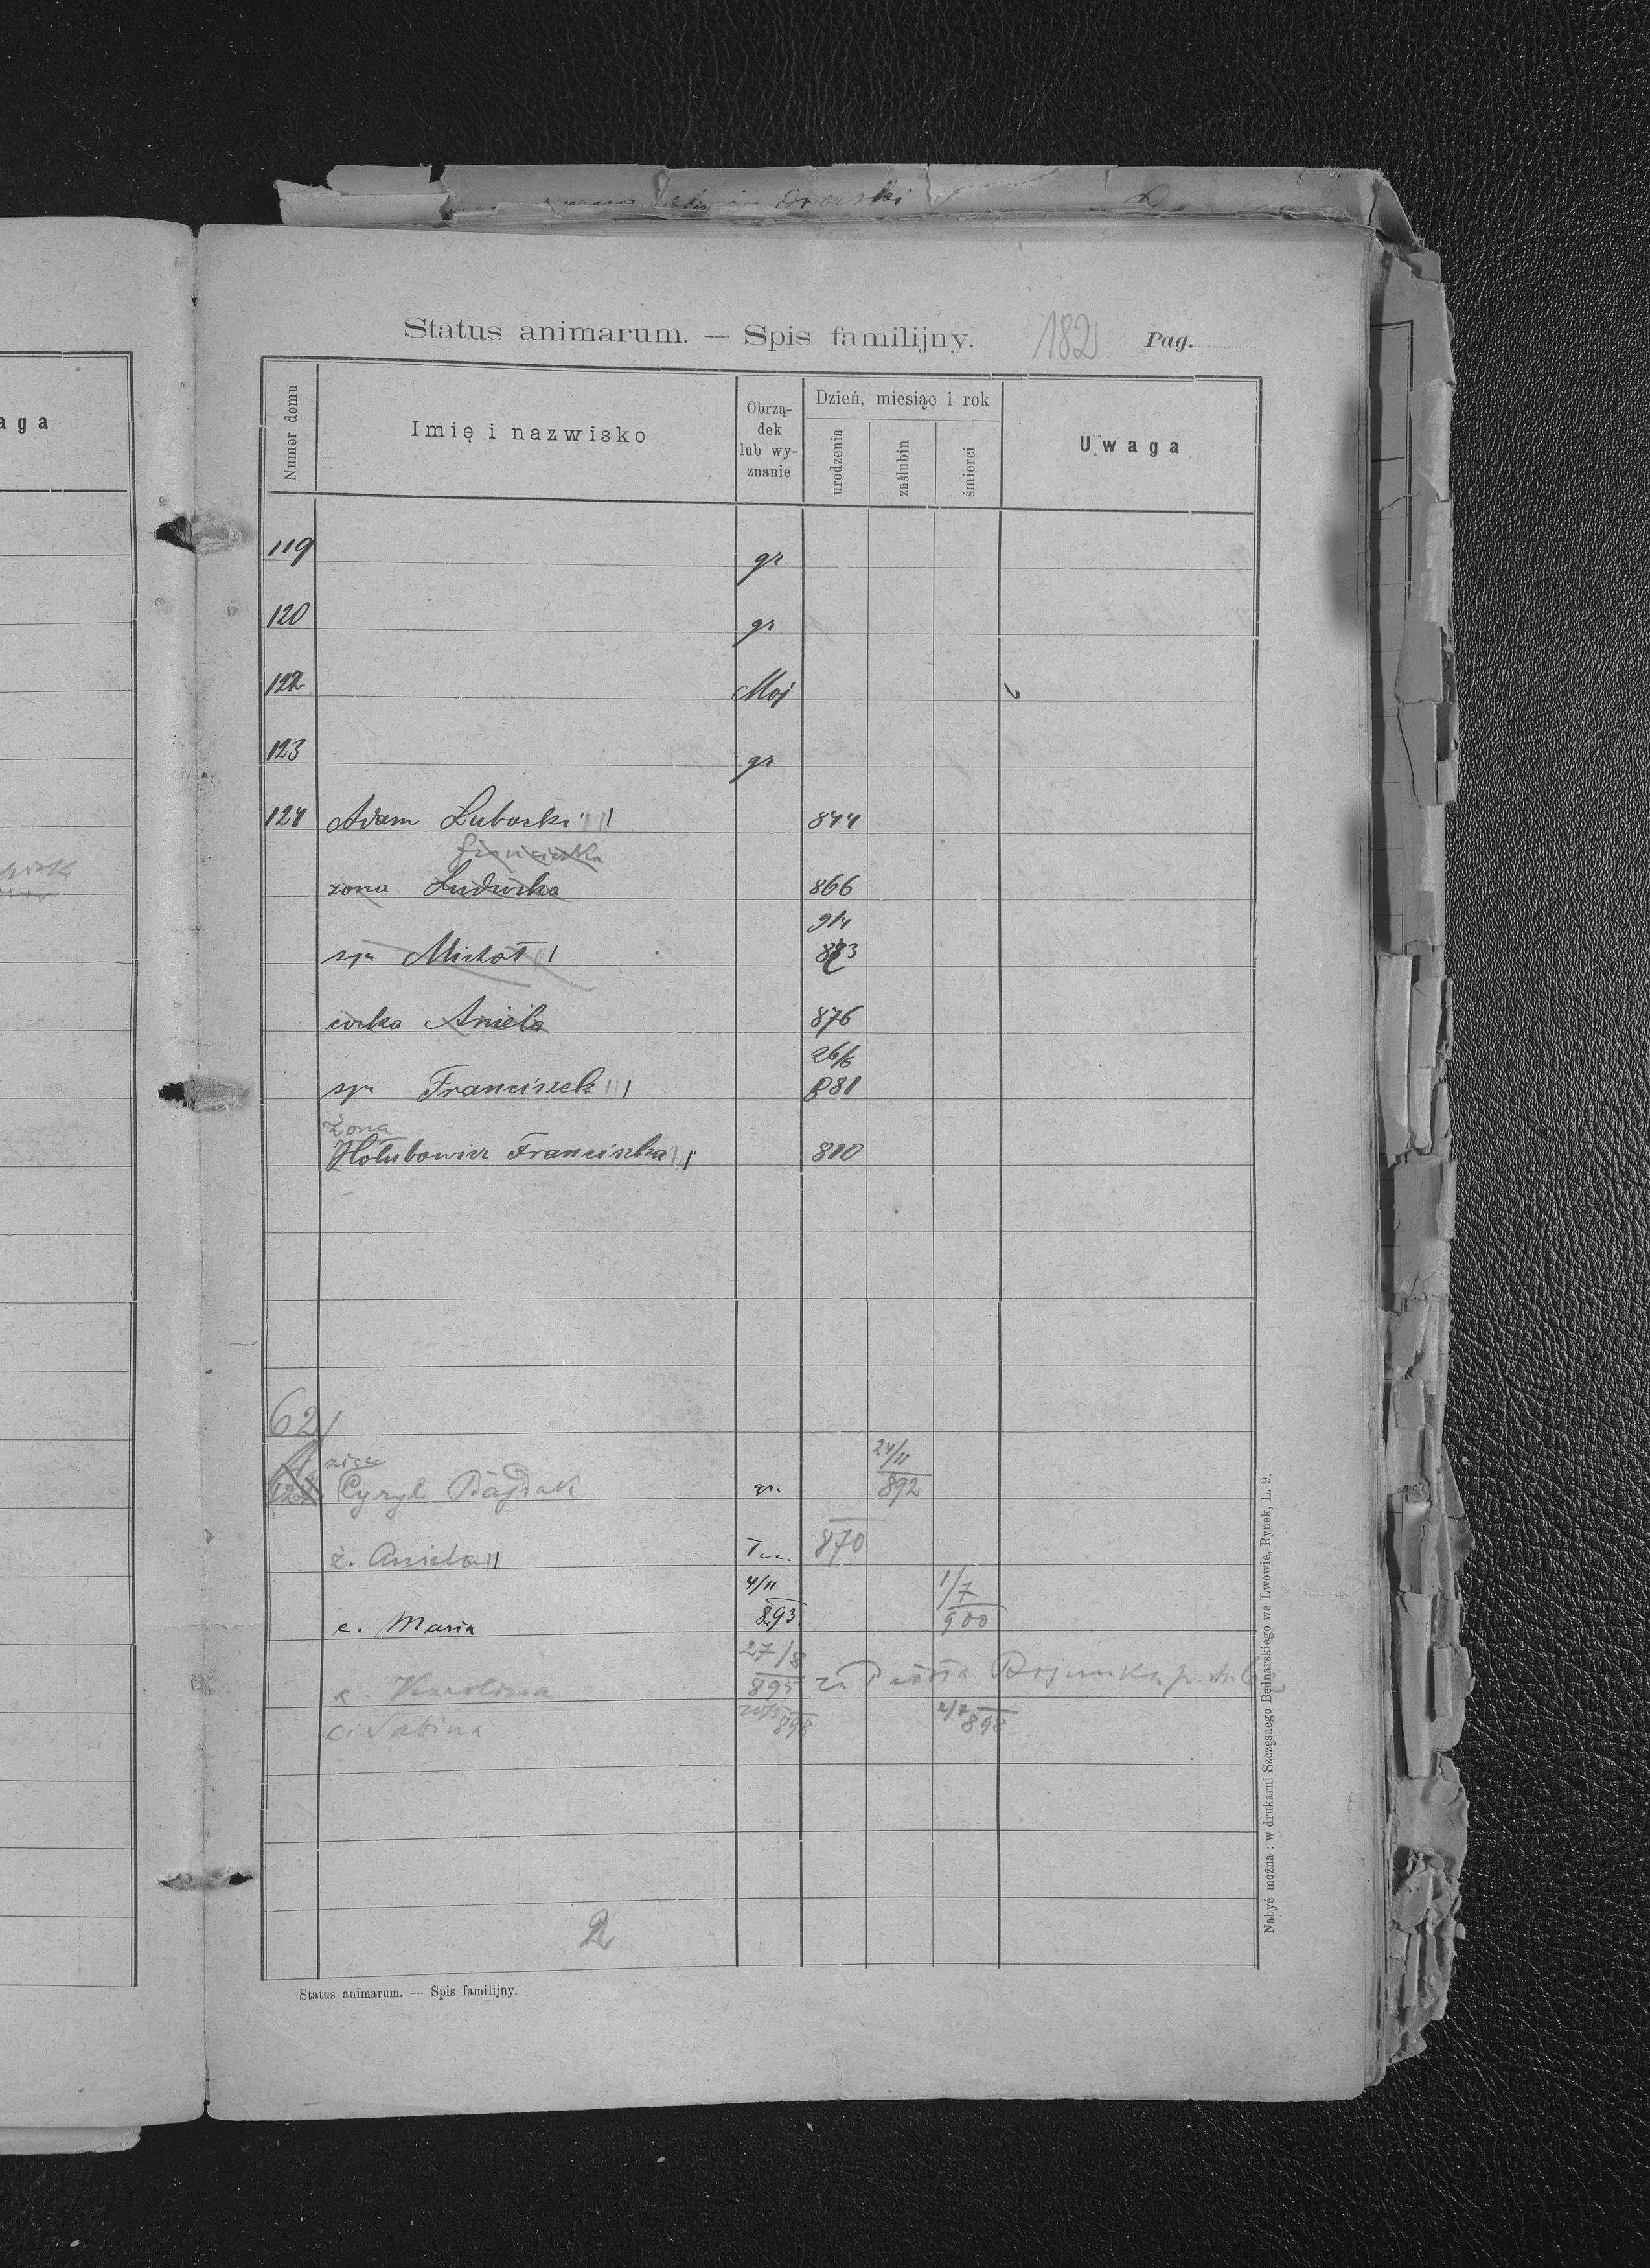 Status animarum. — Spis familijny. 182 Pag.
aga
Numer domu
Imię i nazwisko
Obrzą-
dek
lub wy-
znanie
Dzień, miesiąc i rok
urodzenia
zaślubin
śmierci
Uwaga
119 gr
120 gr
122 Moj
123 gr
124 Adam Lubocki 844
Franciszka
zona Ludwika 866
914
syn Michał 883
córka Aniela 876
26/6
syn Franciszek 881
Żona
Hołubowicz Franciszka 880
62
24/11
Cyryl Bajdak gr. 892
ż. Aniela 870
4/11 1/7
c. Maria 893 900
27/8
c. Karolina 895 za
c. Sabina 898 2/7 898
2
Status animarum. — Spis familijny.
Nabyć można: w drukarni Szczęsnego Bednarskiego we Lwowie, Rynek, L. 9.